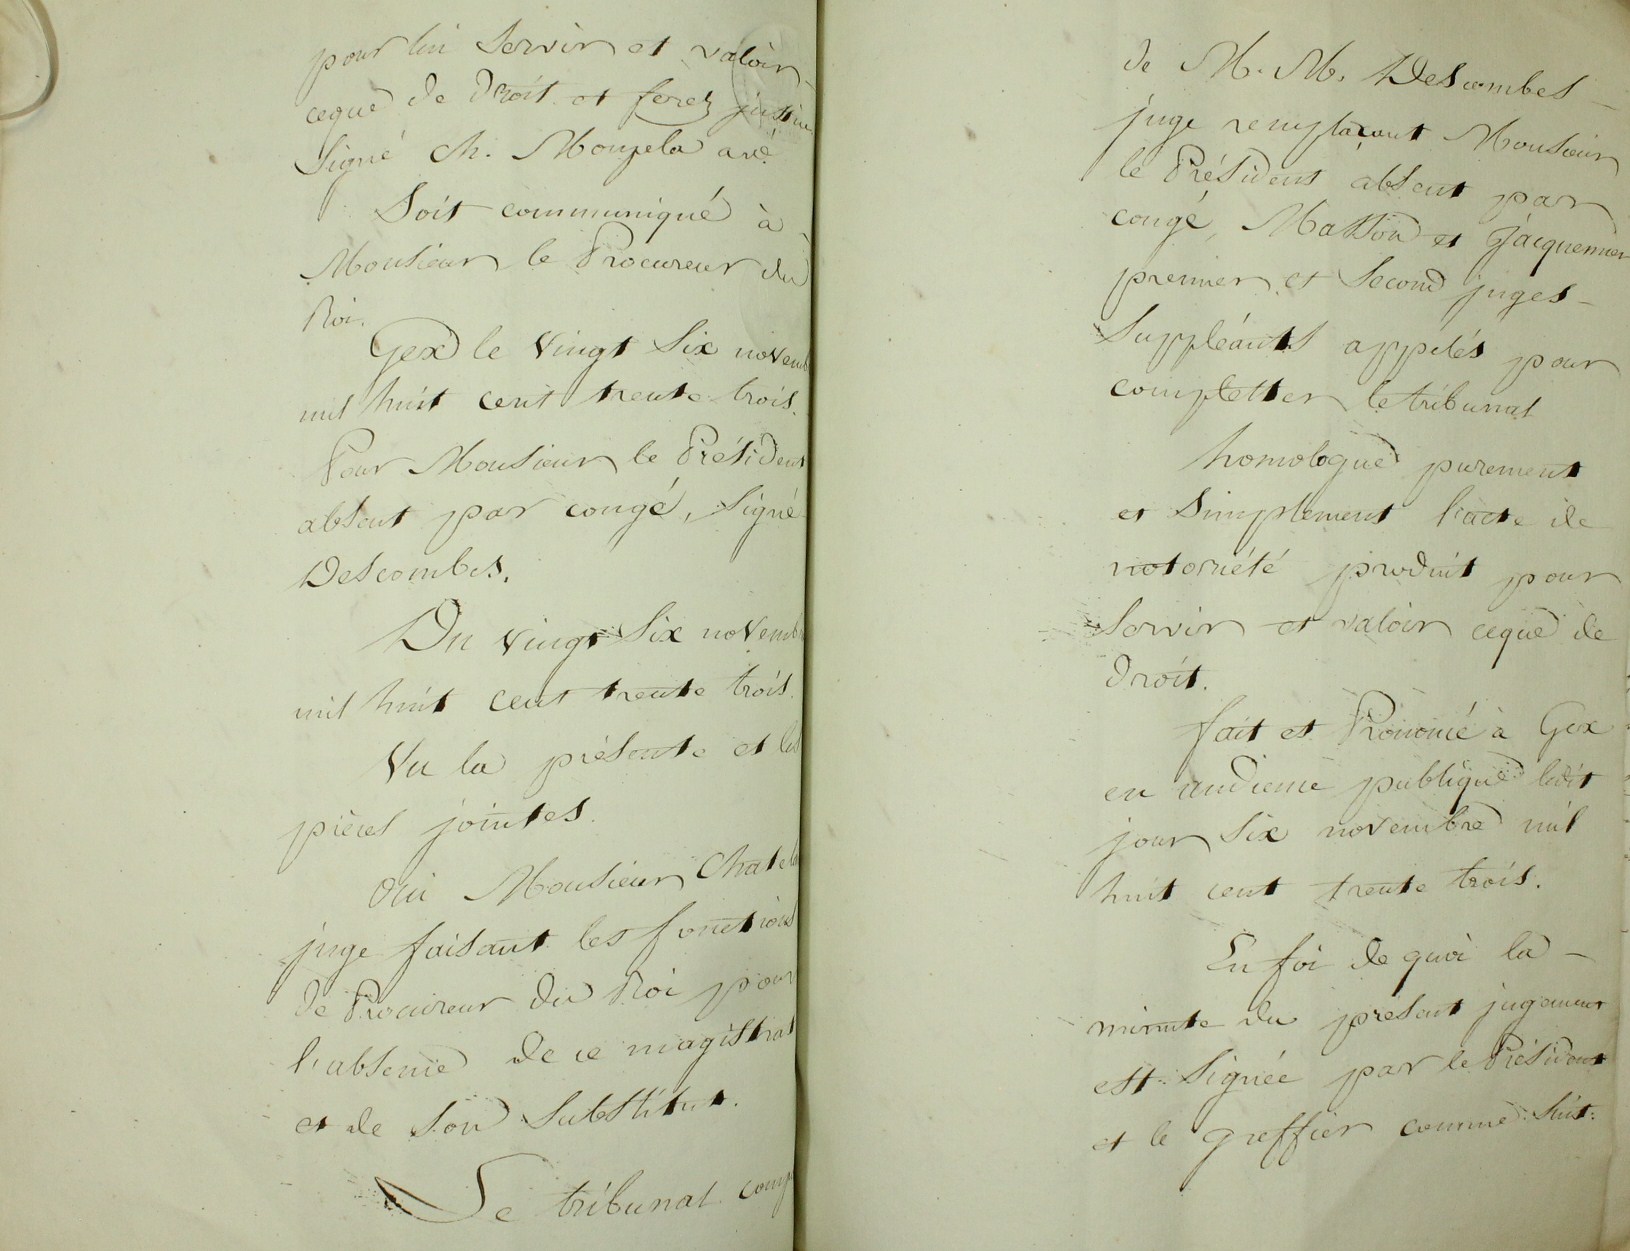 pour lui servir et valoir
ceque de droit et ferez justice
Signé Ch. Mouzela avé
Soit communiqué à
Monsieur le Procureur du
Roi.
Gex le vingt six novemb
mil huit cent trente trois.
Pour Monsieur le Président
absent par congé, signé
Descombes.
Du vingt six novemb
mil huit cent trente trois.
Vu la présente et les
pièces jointes.
Oui Monsieur Chatel
juge faisant les fonctions
de Procureur du Roi pour
l'absence de ce magistrat
et de son substitut.
Le tribunal comp
de M. M. Descombes
juge remplaçant Monsieur
le Président absent par
congé, Masson et Jacquemier
premier et second juges
suppléants appelés pour
completter le tribunal
homologue purement
et simplement l'acte de
notoriété produit pour
servir et valoir ceque de
droit.
fait et Prononcé à Gex
en audience publique ledit
jour six novembre mil
huit cent trente trois.
En foi de quoi la
minute du présent jugement
est signée par le Président
et le greffier comme suit: